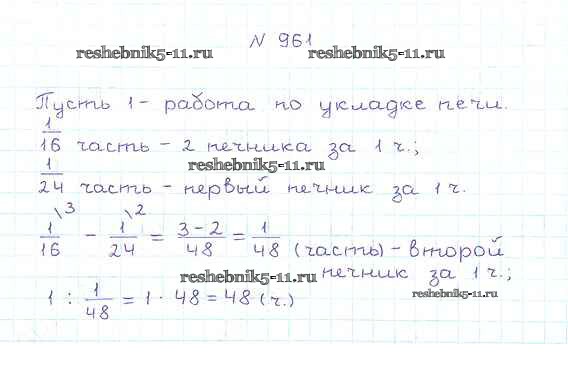 № 961
reshebnik5-11.ru reshebnik5-11.ru
Пусть 1 - работа по укладке печи.
1/16 часть - 2 печника за 1 ч.;
reshebnik5-11.ru
1/24 часть - первый печник за 1 ч.
1/16 \3 - 1/24 \2 = 3-2/48 = 1/48 (часть) - второй
печник за 1 ч.;
reshebnik5-11.ru
1 : 1/48 = 1 · 48 = 48 (ч.)
reshebnik5-11.ru